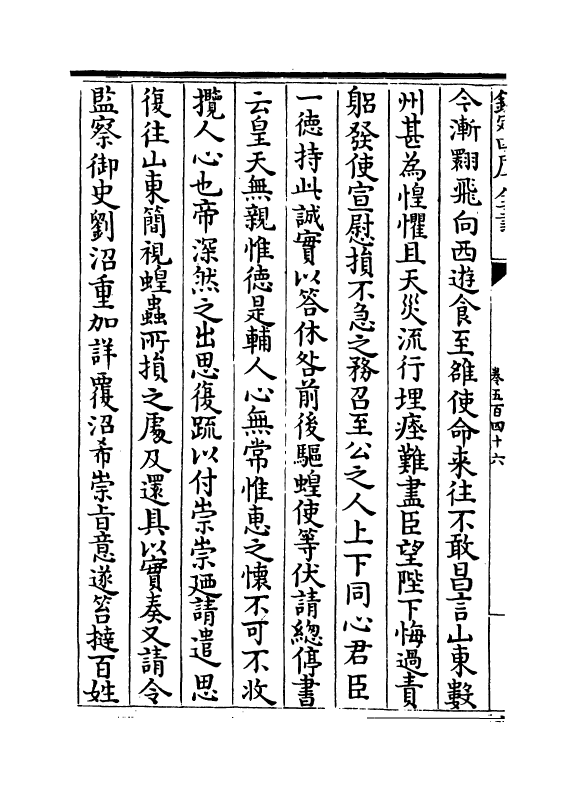 欽定四庫全書
卷五百四十六
今漸翾飛向西遊食至雒使命来往不敢昌言山東數
州甚為惶懼且天災流行埋瘞難盡臣望陛下悔過責
躬發使宣慰損不急之務召至公之人上下同心君臣
一徳持此誠實以答休咎前後驅蝗使等伏請總停書
云皇天無親惟徳是輔人心無常惟恵之懐不可不收
攬人心也帝深然之出思復疏以付崇崇廼請遣思
復往山東簡視蝗蟲所損之處及還具以實奏又請令
監察御史劉沼重加詳覆沼希崇旨意遂笞撻百姓